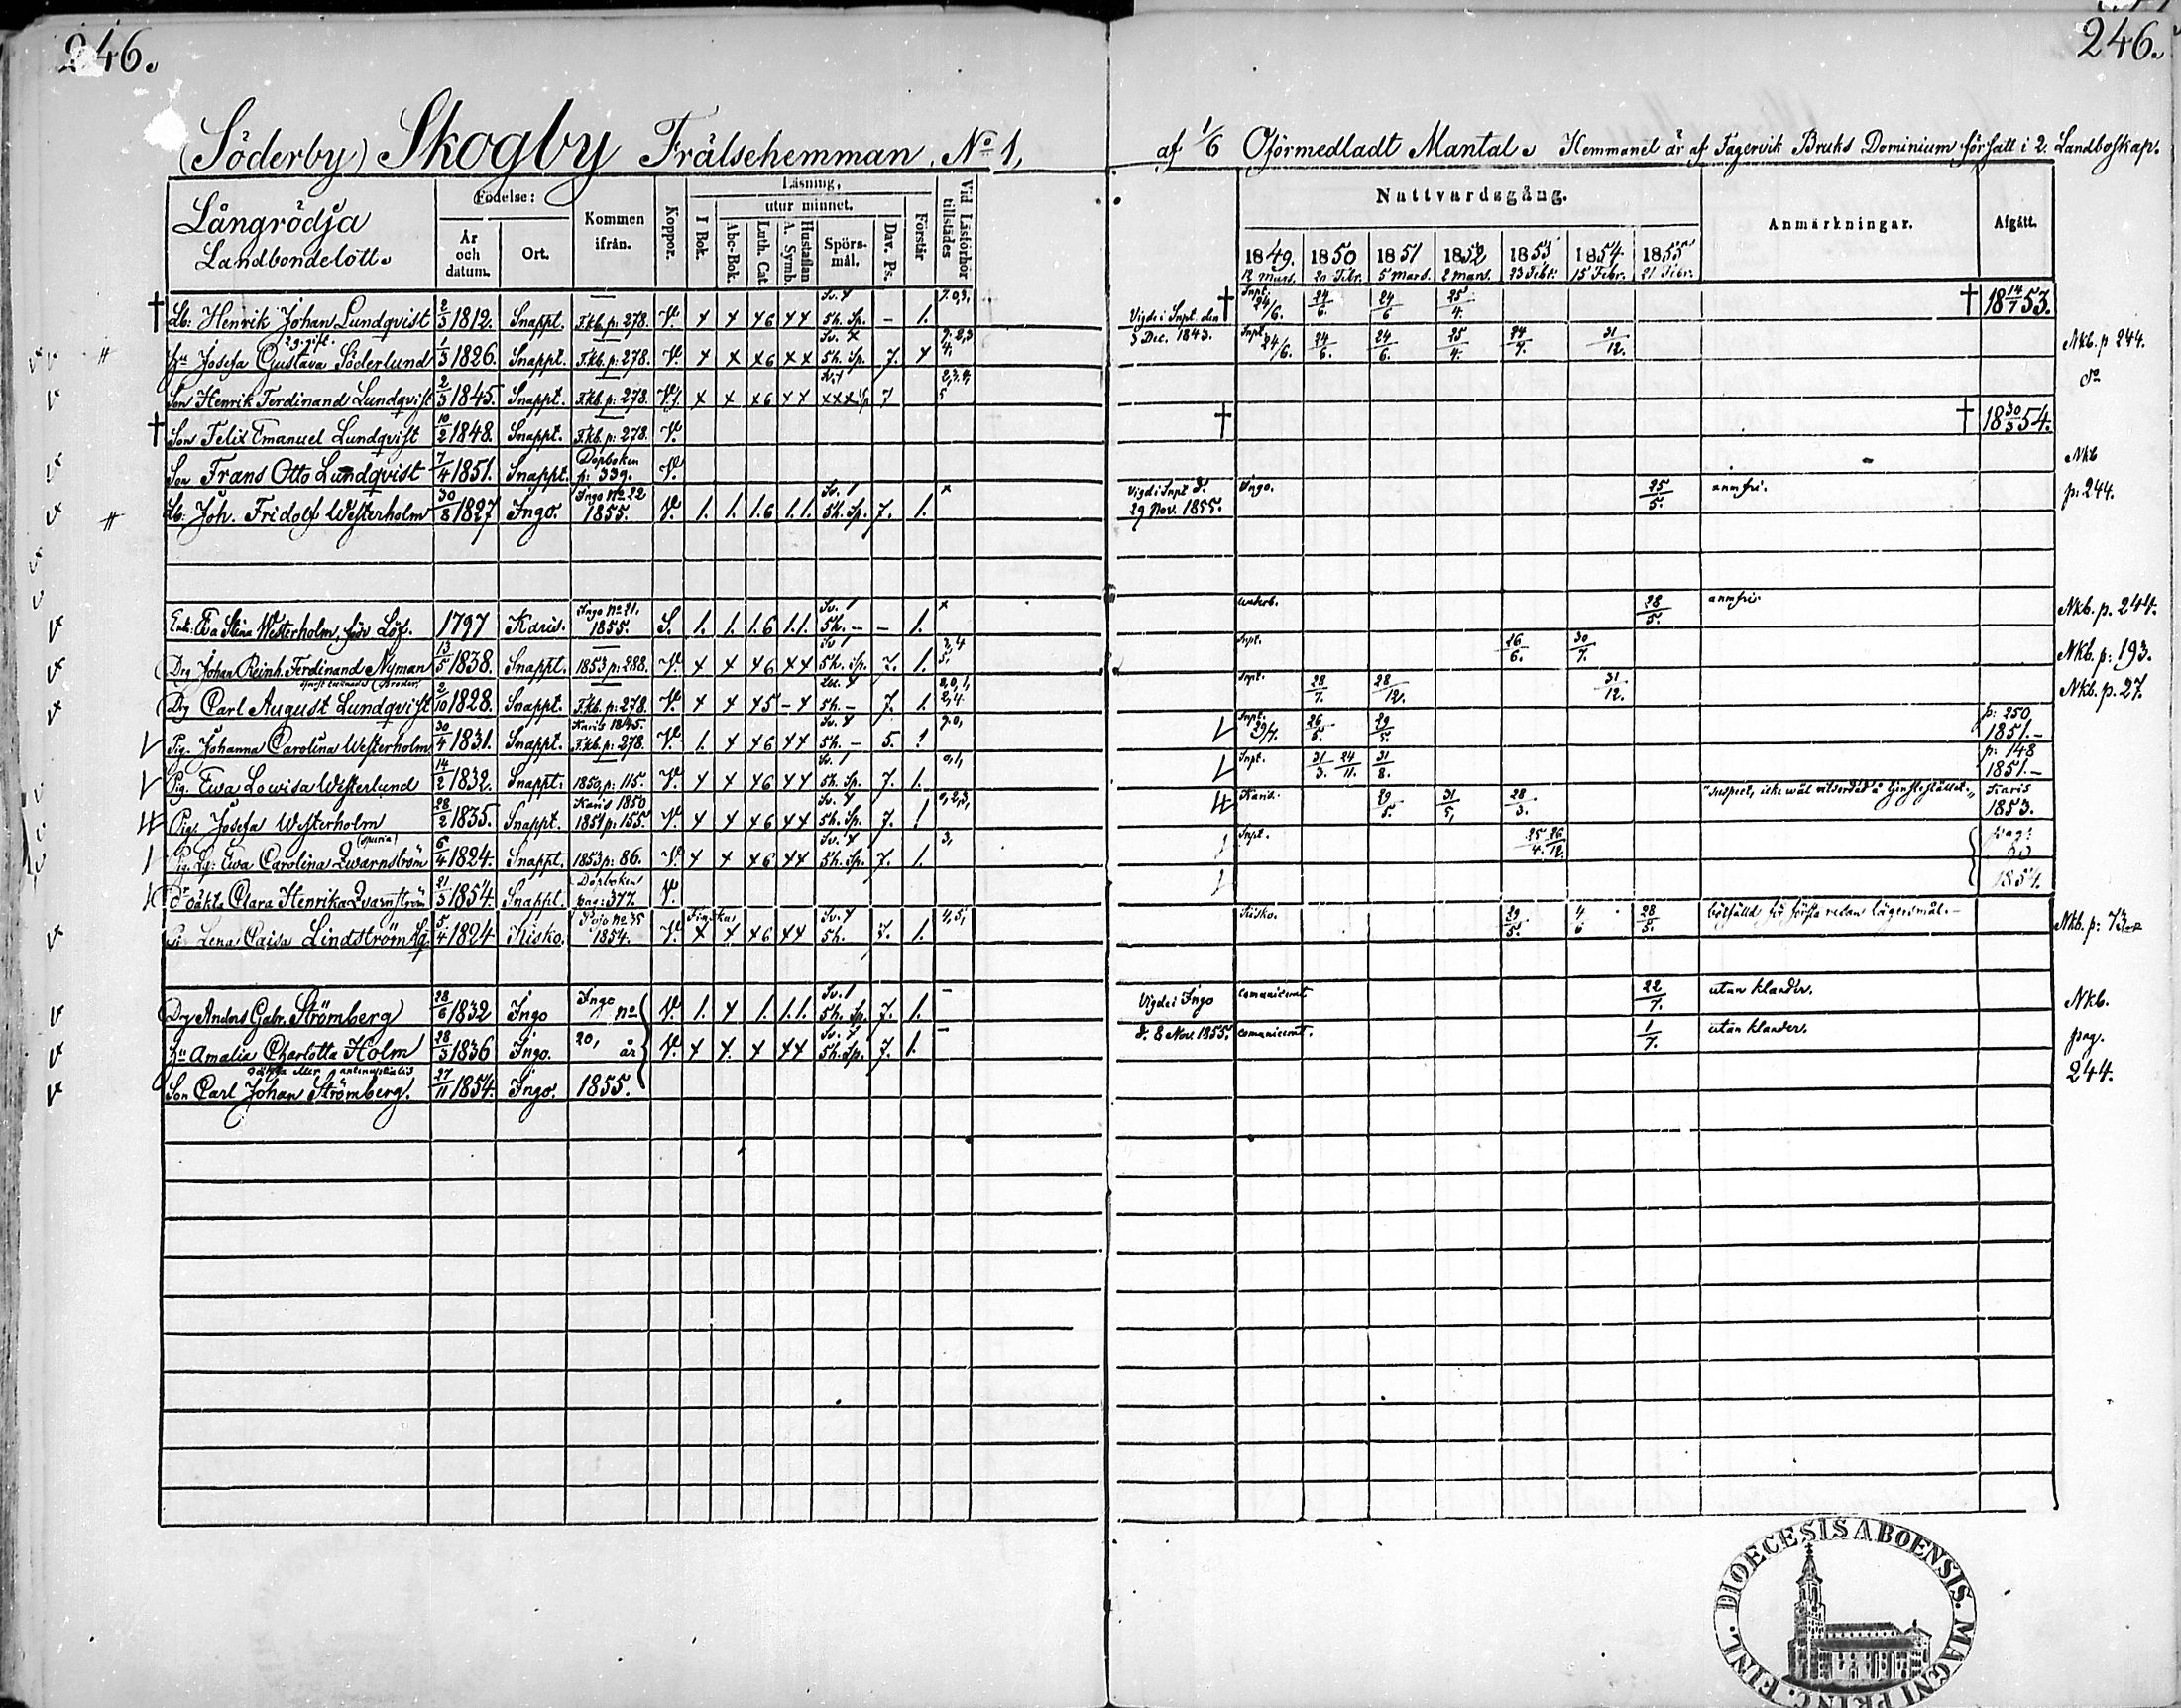 246.
246.
(Söderby) Skogby Frälsehemman, No 1,
af 1/6 Oförmedladt Mantal. Hemmanet är af Fagervik Bruks Dominium försatt i 2 Landboskap.
Långrödja
Landbondelott.
Födelse:
År och datum.
Ort.
Kommen ifrån.
Koppor.
Läsning,
I Bok.
utur minnet.
Abc-Bok.
Luth. Cat.
A. Symb.
Hustaflan
Spörsmål.
Dav. Ps.
Förstår
Vid Läsförhör tillstädes
Nattvardsgång.
1849. 1850 1851 1852 1853 1854 1855
12 Mars. 20 Febr. 5 Mars. 2 Mars. 23 Febr. 15 Febr. 21 Febr.
Anmärkningar.
Afgått.
† Lb: Henrik Johan Lundqvist 2/3 1812. Snappt. F.kb. p: 278. V. x x x6 xx Sv. x 5h. Sp. – 1. Vigde i Snpt. den † Snpt. 24/6. 24/6. 24/6 25/4. † 18 14/7 53.
2 g. gift.
Hu Josefa Gustava Söderlund 1/3 1826. Snappt. F.kb. p: 278. V. x x x6 xx Sv. x 5h. Sp. 7. x 3 Dec. 1843. Snpt. 24/6. 24/6. 24/6. 25/4. 24/7. 31/12. Nkb. p 244.
Son Henrik Ferdinand Lundqvist 2/3 1845. Snappt. F.kb. p: 278. x x x6 xx 7 do
† Son Felix Emanuel Lundqvist 10/2 1848. Snappt. F.kb. p: 278. V. † † 18 30/3 54.
Son Frans Otto Lundqvist 7/4 1851. Snappt. Dopboken p: 339. V. Nkb
Lb. Joh. Fridolf Westerholm 30/8 1827 Ingo. Ingo No 22 1855. V. 1. 1. 1.6 1.1. Sv. 1 5h. Sp. 7. 1. x Vigd i Snpt d. 29 Nov. 1855. Ingo. 25/5. anmfri. p: 244.
Enk: Eva Stina Westerholm, född Löf. 1797 Karis. Ingo No 21. 1855. S. 1. 1. 1.6 1.1. Sv. 1 5h. – – 1. x 28/5. anmfri. Nkb. p. 244.
Drg Johan Reinh. Ferdinand Nyman 13/5 1838. Snappt. 1853 p: 288. V. x x x6 xx Sv 1 5h. Sp. 7. 1. 3,4 5, Snpt. 26/6. 30/7. Nkb. p: 193.
(Broder)
Drg Carl August Lundqvist 2/10 1828. Snappt. F.kb. p: 278. V. x x x5 – x 5h. – 7. 1. 2,4. Snpt. 28/7. 28/12. 31/12. Nkb. p. 27.
Pig. Johanna Carolina Westerholm 30/4 1831. Snappt. Karis 1845. F.kb. p: 278. V. 1. x x6 xx Sv. x 5h. – 5. 1 9.0, Snpt. 29/7. 26/5. 29/5. p: 250 1851.–
Pig. Ewa Lowisa Westerlund 14/2 1832. Snappt. 1850, p: 115. V. x x x6 xx Sv. 1 5h. Sp. 7. 1. 0,1, Snpt. 31/3. 24/11. 31/8. p: 148 1851.–
Pig. Josefa Westerholm 28/2 1835. Snappt. Karis 1850 1851 p: 155. V. x x x6 xx Sv. x 5h. Sp. 7. 1 0,2,3, Karis. 29/5. 31/5, 28/3. "suspect, icke wäl vitsordad å tjenstestället." Karis 1853.
(spuria)
Pig. Ewa Carolina Qwarnström 6/4 1824. Snappt. 1853 p: 86. V. x x x6 xx Sv. x 5h. Sp. 7. 1. 3, Snpt. 25/4. 26/12. pag:
dr oäkta Clara Henrika Qvarnström 21/3 1854. Snappt. Dopboken pag: 377. V. 1854.
Pi Lena Caisa Lindström 5/4 1824 Kisko. Pojo No 35 1854. V. Finska x x x6 xx Sv. x 5h. 7. 1. 4,5, Kisko. 29/5. 4/6 28/5. bötfälld för första resan lägersmål.– Nkb. p: 73
Drg Anders Gabr. Strömberg 28/6 1832 Ingo Ingo No V. 1. x 1. 1.1. Sv. 1 5h. Sp. 7. 1. – Vigde i Ingo comunicerat 22/7. utan klander. Nkb.
Hu Amalia Charlotta Holm 28/3 1836 Ingo. 20, år V. x x. x xx Sv. x 5h. Sp. 7. 1. – d. 8 Nov. 1855. comunicerat. 1/7. utan klander. pag.
oäkta eller antenuptialis
Son Carl Johan Strömberg. 27/11 1854. Ingo. 1855. 244.
DIOECESIS ABOENSIS. MAGNI PRINC. FINL.